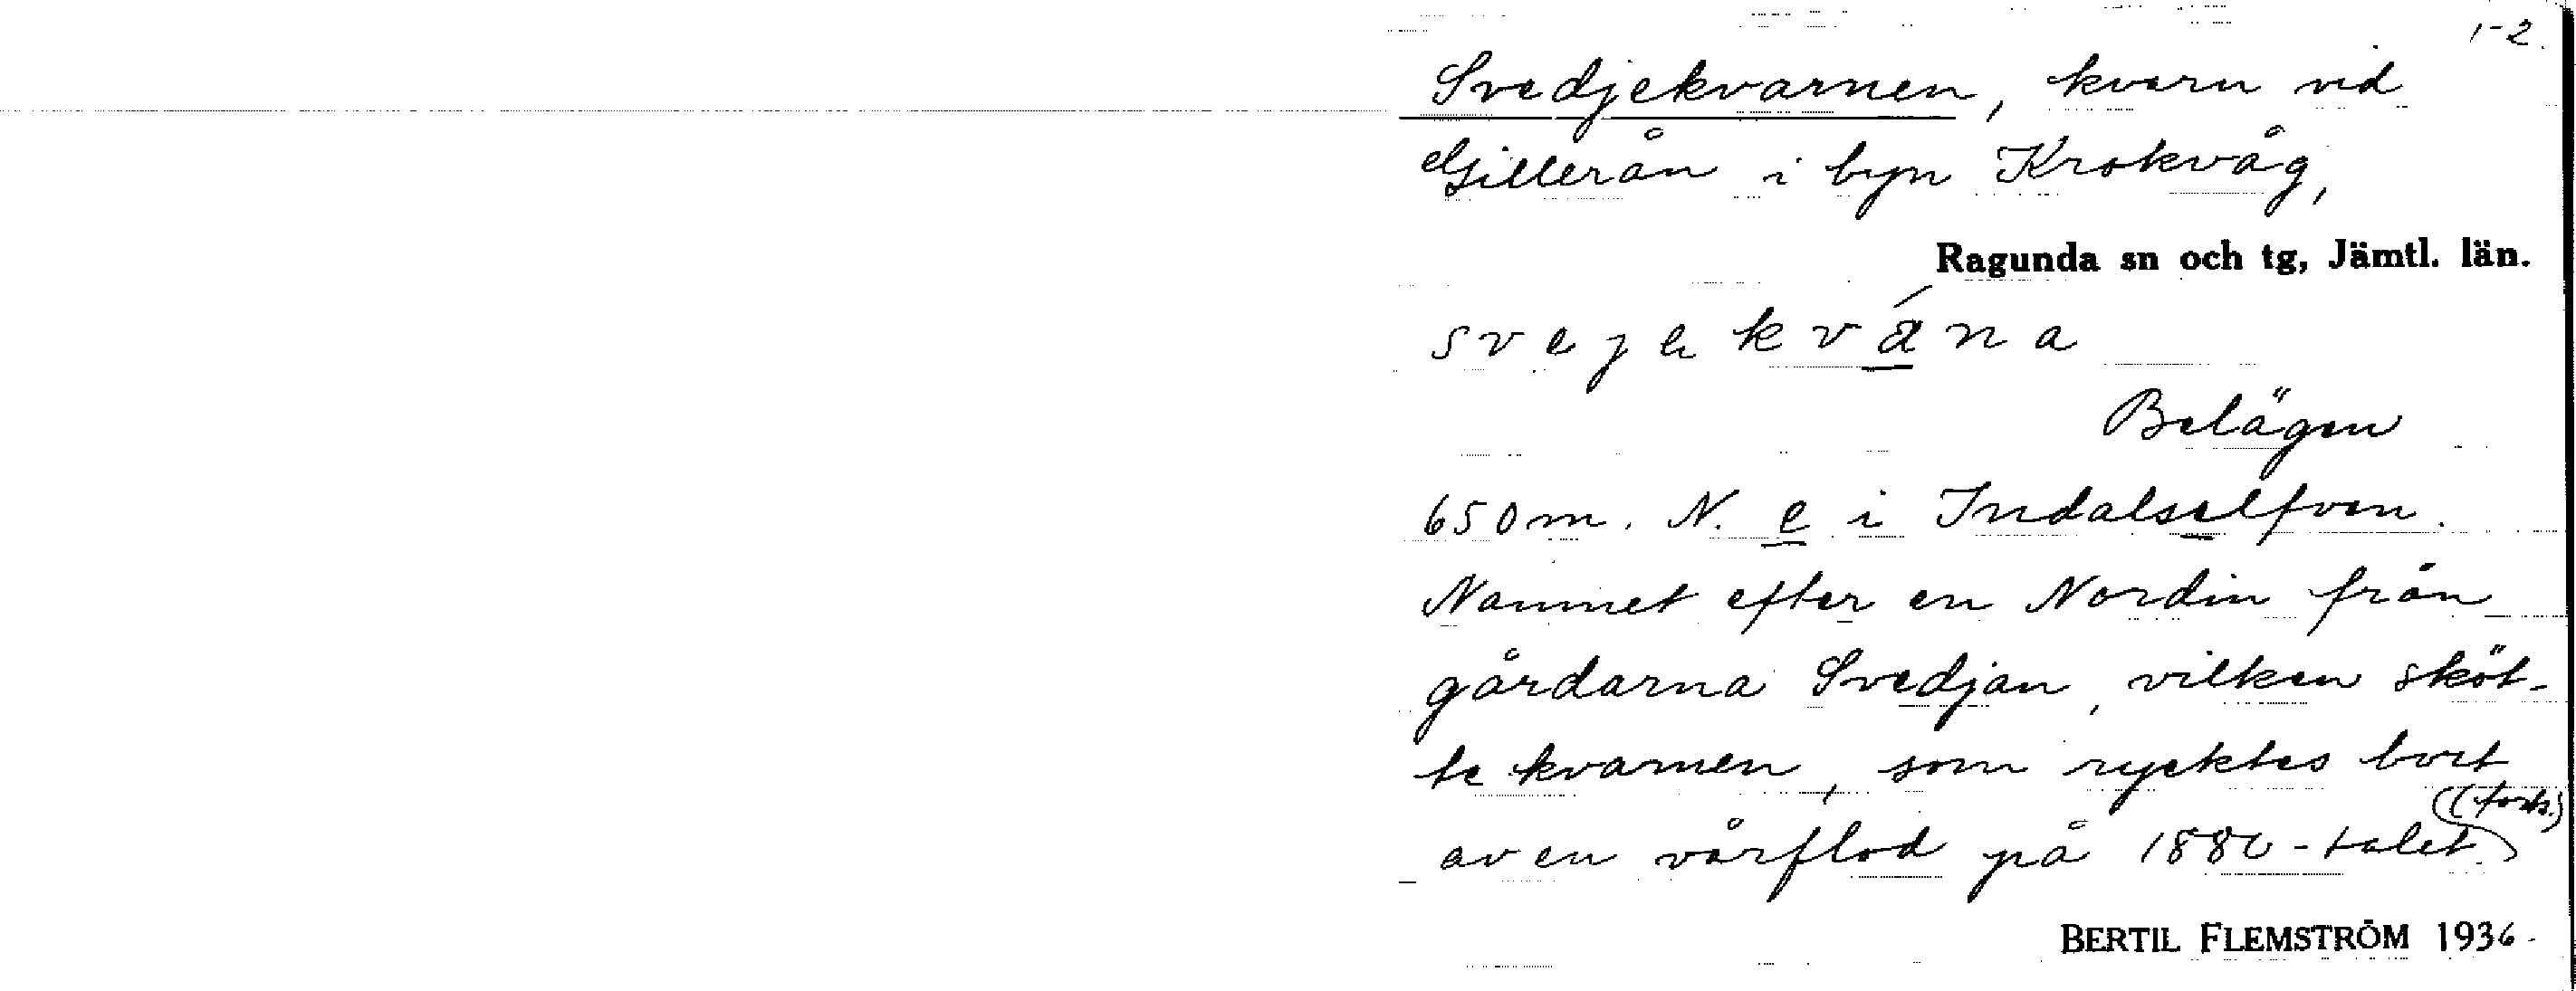 1-2.
Svedjekvarnen, kvarn vid
Gillerån i byn Krokvåg,
Ragunda sn och tg, Jämtl. län.
svejekvána
Belägen
650 m. N. e i Indalselfven.
Namnet efter en Nordin från
gårdarna Svedjan, vilken sköt-
te kvarnen, som rycktes bort
av en vårflod på 1880-talet.
BERTIL FLEMSTRÖM 1936